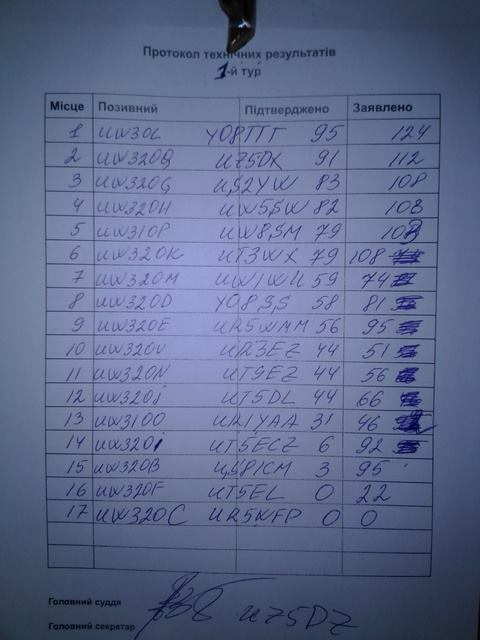 Протокол технічних результатів
1-й тур
Місце Позивний Підтверджено Заявлено
1 UW30L YO8TTT 95 124
2 UW320Q UZ5DK 91 112
3 UW320G US2YW 83 108
4 UW320H UW5SW 82 108
5 UW310P UW8SM 79 108
6 UW320K UT3WX 79 108
7 UW320M UW1WU 59 74
8 UW320D YO8SS 58 81
9 UW320E UR5WMM 56 95
10 UW320U UR3EZ 44 51
11 UW320N UT9EZ 44 56
12 UW320J UT5DL 44 66
13 UW310O UR1YAA 31 46
14 UW320I UT5ECZ 6 92
15 UW320B US8ICM 3 95
16 UW320F UT5EL 0 22
17 UW320C UR5WFP 0 0
Головний суддя
Головний секретар UZ5DZ